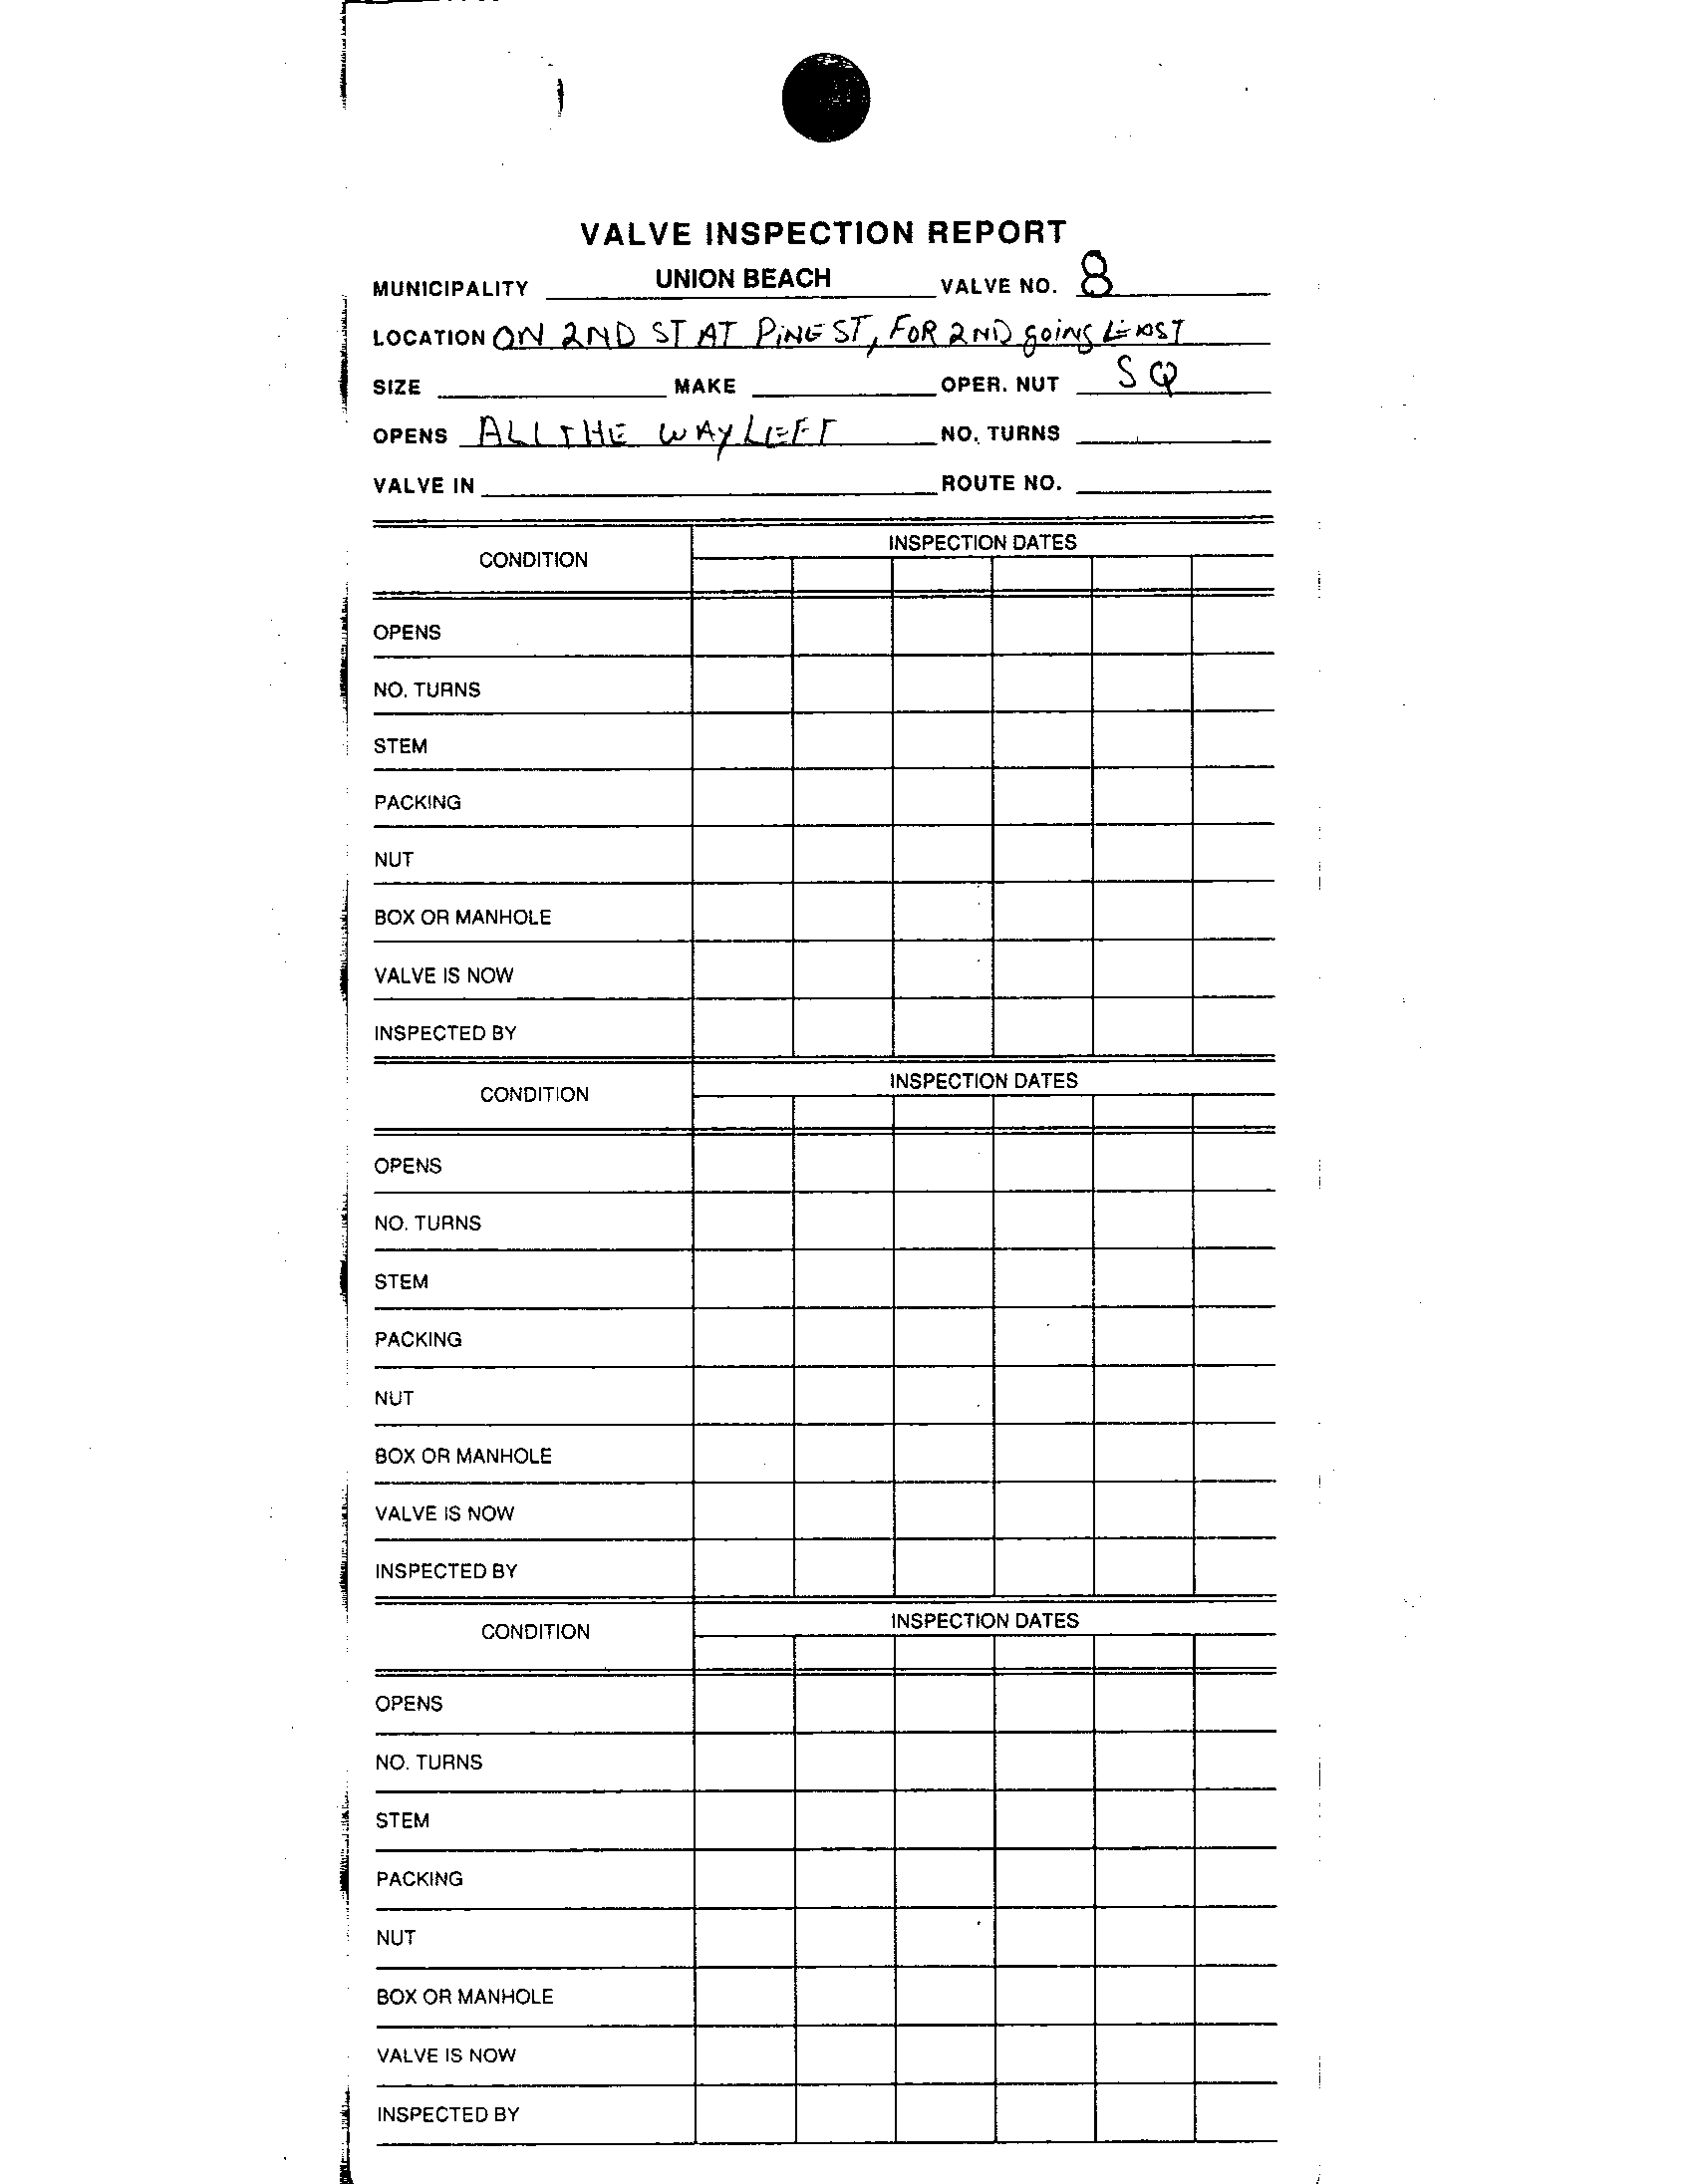 VALVE INSPECTION REPORT
MUNICIPALITY UNION BEACH VALVE NO. 8
LOCATION ON 2ND ST AT PINE ST, FOR 2ND going EAST
SIZE MAKE OPER. NUT SQ
OPENS ALL THE WAY LEFT NO. TURNS
VALVE IN ROUTE NO.
CONDITION INSPECTION DATES
OPENS
NO. TURNS
STEM
PACKING
NUT
BOX OR MANHOLE
VALVE IS NOW
INSPECTED BY
CONDITION INSPECTION DATES
OPENS
NO. TURNS
STEM
PACKING
NUT
BOX OR MANHOLE
VALVE IS NOW
INSPECTED BY
CONDITION INSPECTION DATES
OPENS
NO. TURNS
STEM
PACKING
NUT
BOX OR MANHOLE
VALVE IS NOW
INSPECTED BY